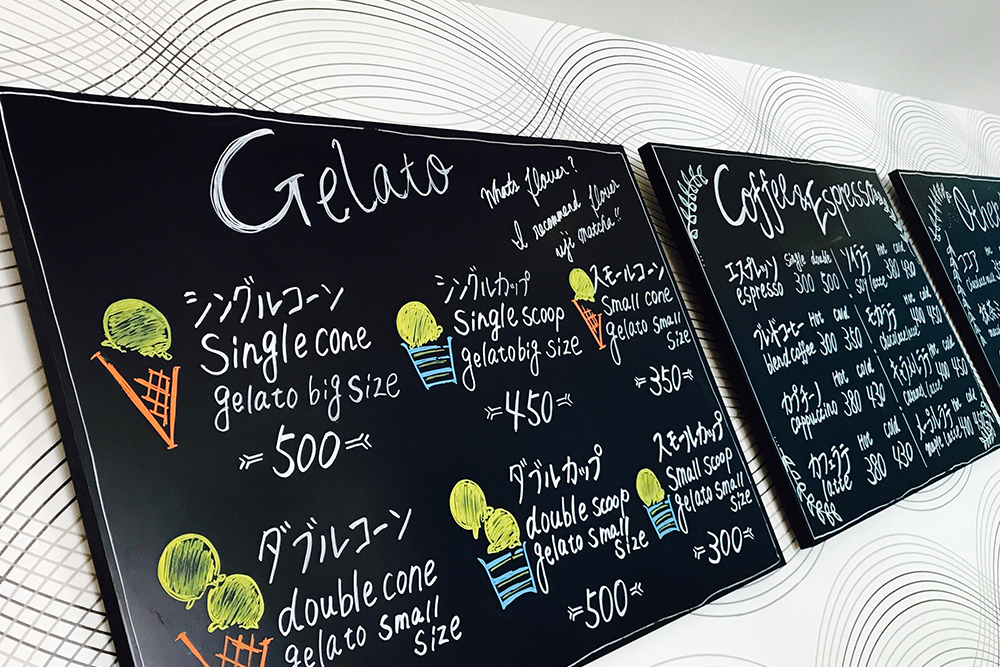 Gelato
What's flavor?
I recommend flavor
uji matcha!!
シングルコーン
Single cone
gelato big size
500
シングルカップ
Single scoop
gelato big size
450
スモールコーン
Small cone
gelato small
size
350
ダブルコーン
double cone
gelato small
size
ダブルカップ
double scoop
gelato small
size
500
スモールカップ
Small scoop
gelato small
size
300
Coffee & Espresso
エスプレッソ single double
espresso 300 500
ブレンドコーヒー Hot cold
blend coffee 300 350
カプチーノ Hot cold
cappuccino 380 430
カフェラテ Hot cold
latte 380 430
ソイラテ Hot cold
soy latte 380 430
モカラテ Hot cold
400 450
キャラメルラテ Hot cold
caramel latte 400
メープルラテ Hot cold
maple latte 400
Other
ココア